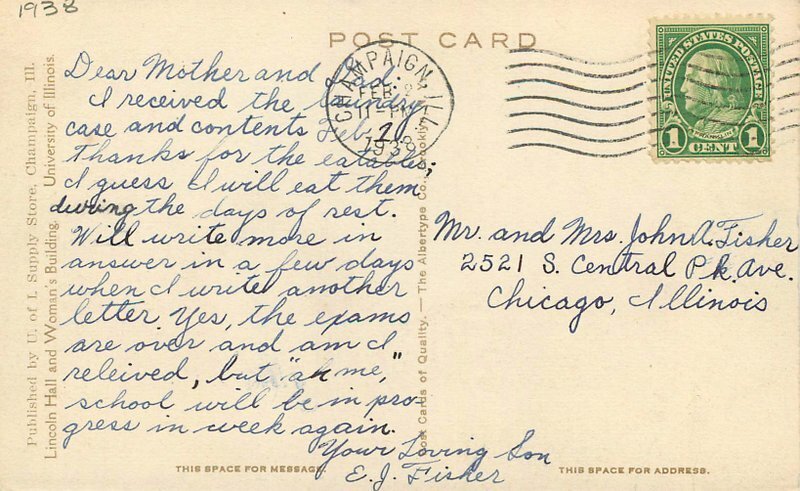 1938
POST CARD
Published by U. of I. Supply Store, Champaign, Ill.
Lincoln Hall and Woman's Building, University of Illinois.
Dear Mother and Dad:
I received the laundry
case and contents Feb. 2
Thanks for the eatables;
I guess I will eat them
during the days of rest.
Will write more in
answer in a few days
when I write another
letter Yes, the exams
are over and am I
releived, but "ah me,"
school will be in pro-
gress in week again.
Your Loving Son
E. J. Fisher
THIS SPACE FOR MESSAGE.
Post Cards of Quality. — The Albertype Co., Brooklyn
CHAMPAIGN, ILL.
FEB 2
11 - PM
1938
UNITED STATES POSTAGE
FRANKLIN
1 CENT 1
Mr. and Mrs. John A. Fisher
2521 S. Central Pk. Ave.
Chicago, Illinois
THIS SPACE FOR ADDRESS.